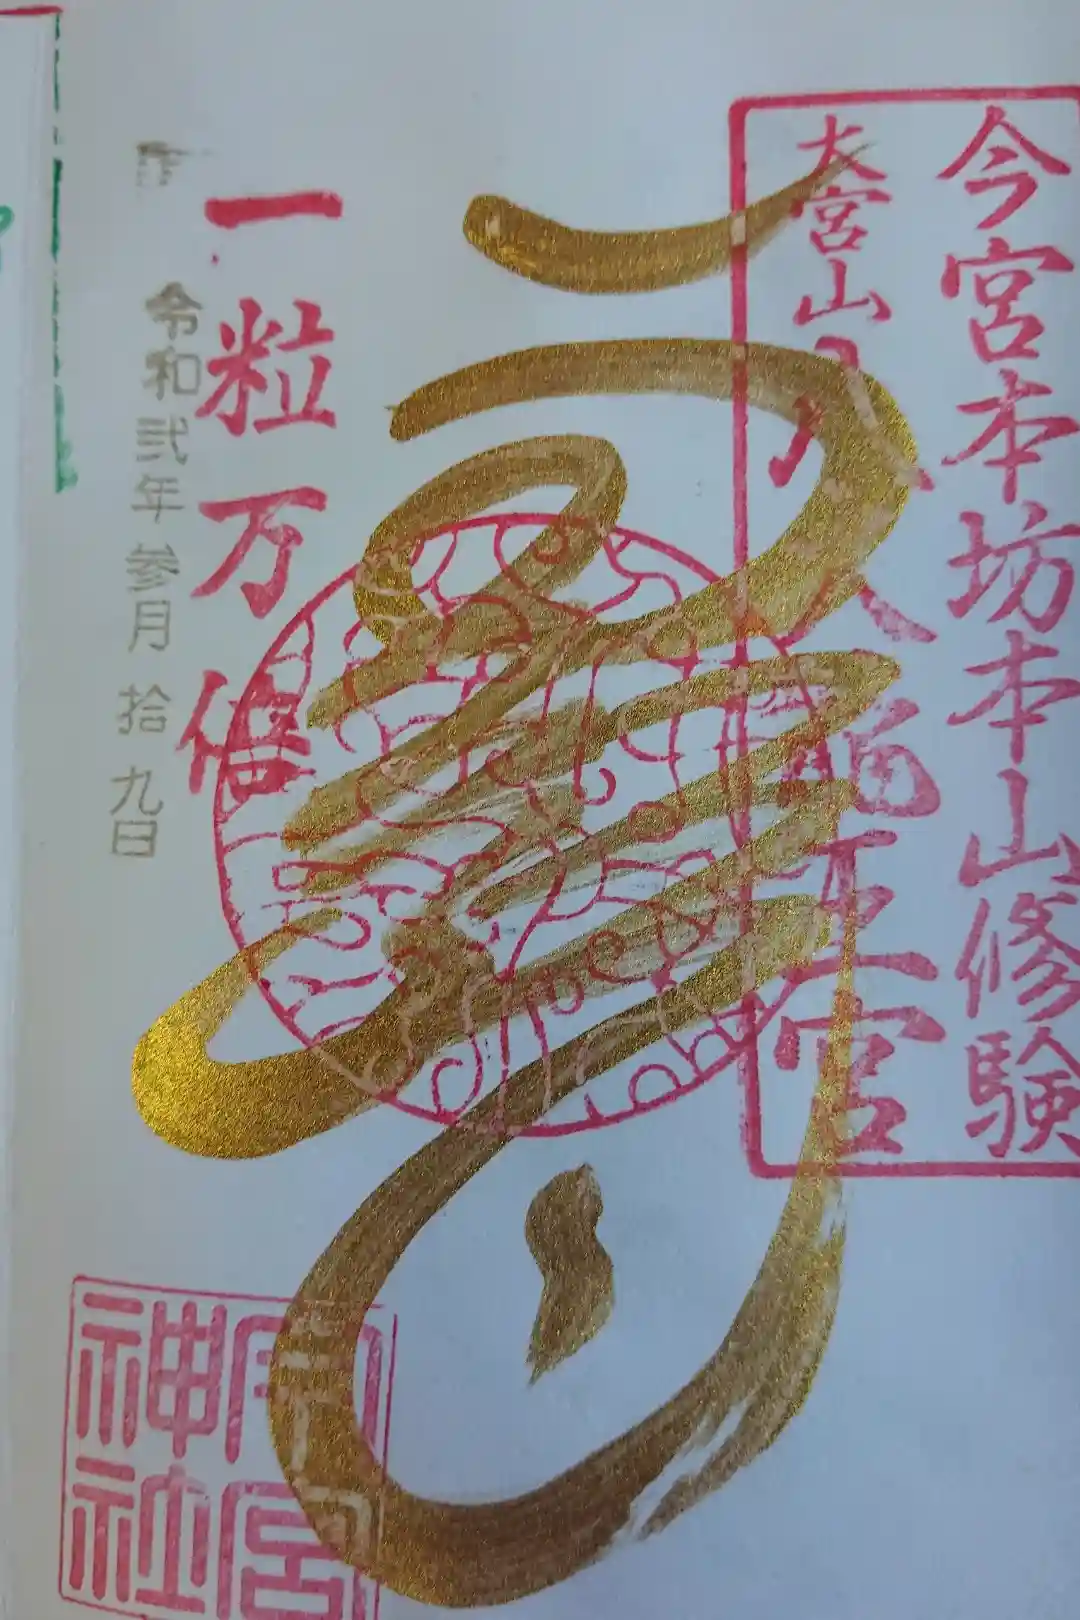 今宮本坊本山修験
大宮山 八大龍王宮
一粒万倍
令和弐年参月拾九日
今宮
神社